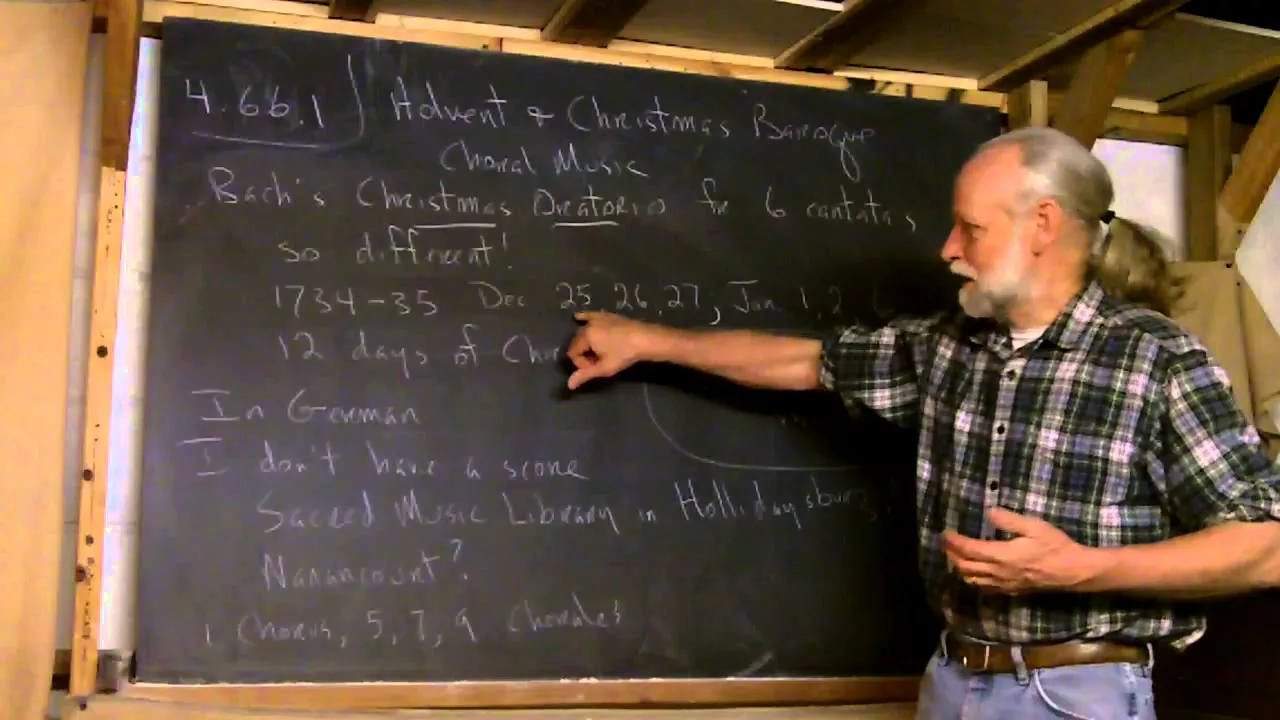 4.66.1 Advent & Christmas Baroque
Choral Music
Bach's Christmas Oratorio for 6 cantatas
so different!
1734-35 Dec 25, 26, 27, Jan 1, 2, 6
12 days of
In German
I don't have a score
Sacred Music Library in Hollidaysburg
?
1 Chorus, 5, 7, 9 Chorales